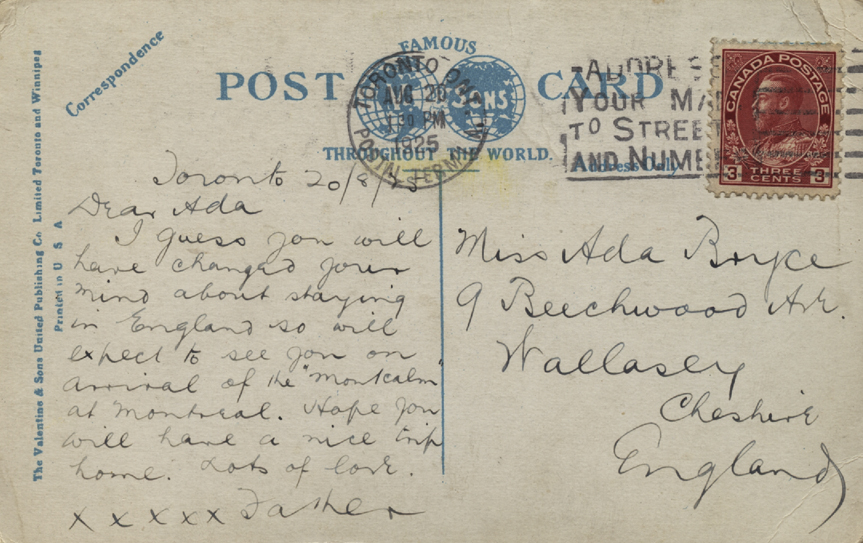 The Valentine & Sons United Publishing Co. Limited Toronto and Winnipeg
Printed in U S A
Correspondence
FAMOUS
POST CARD
SONS
THROUGHOUT THE WORLD.
Address Only
TORONTO ONT.
AUG 20
PM
1925
POSTAL TERMINAL A
ADDRESS
YOUR MA
TO STREE
AND NUMB
CANADA POSTAGE
3 THREE CENTS 3
Toronto 20/8/25
Dear Ada
I guess you will
have changed your
mind about staying
in England so will
expect to see you on
arrival of the "Montcalm"
at Montreal. Hope you
will have a nice trip
home. Lots of love.
x x x x x Father
Miss Ada Bryce
9 Beechwood Av.
Wallasey
Cheshire
England